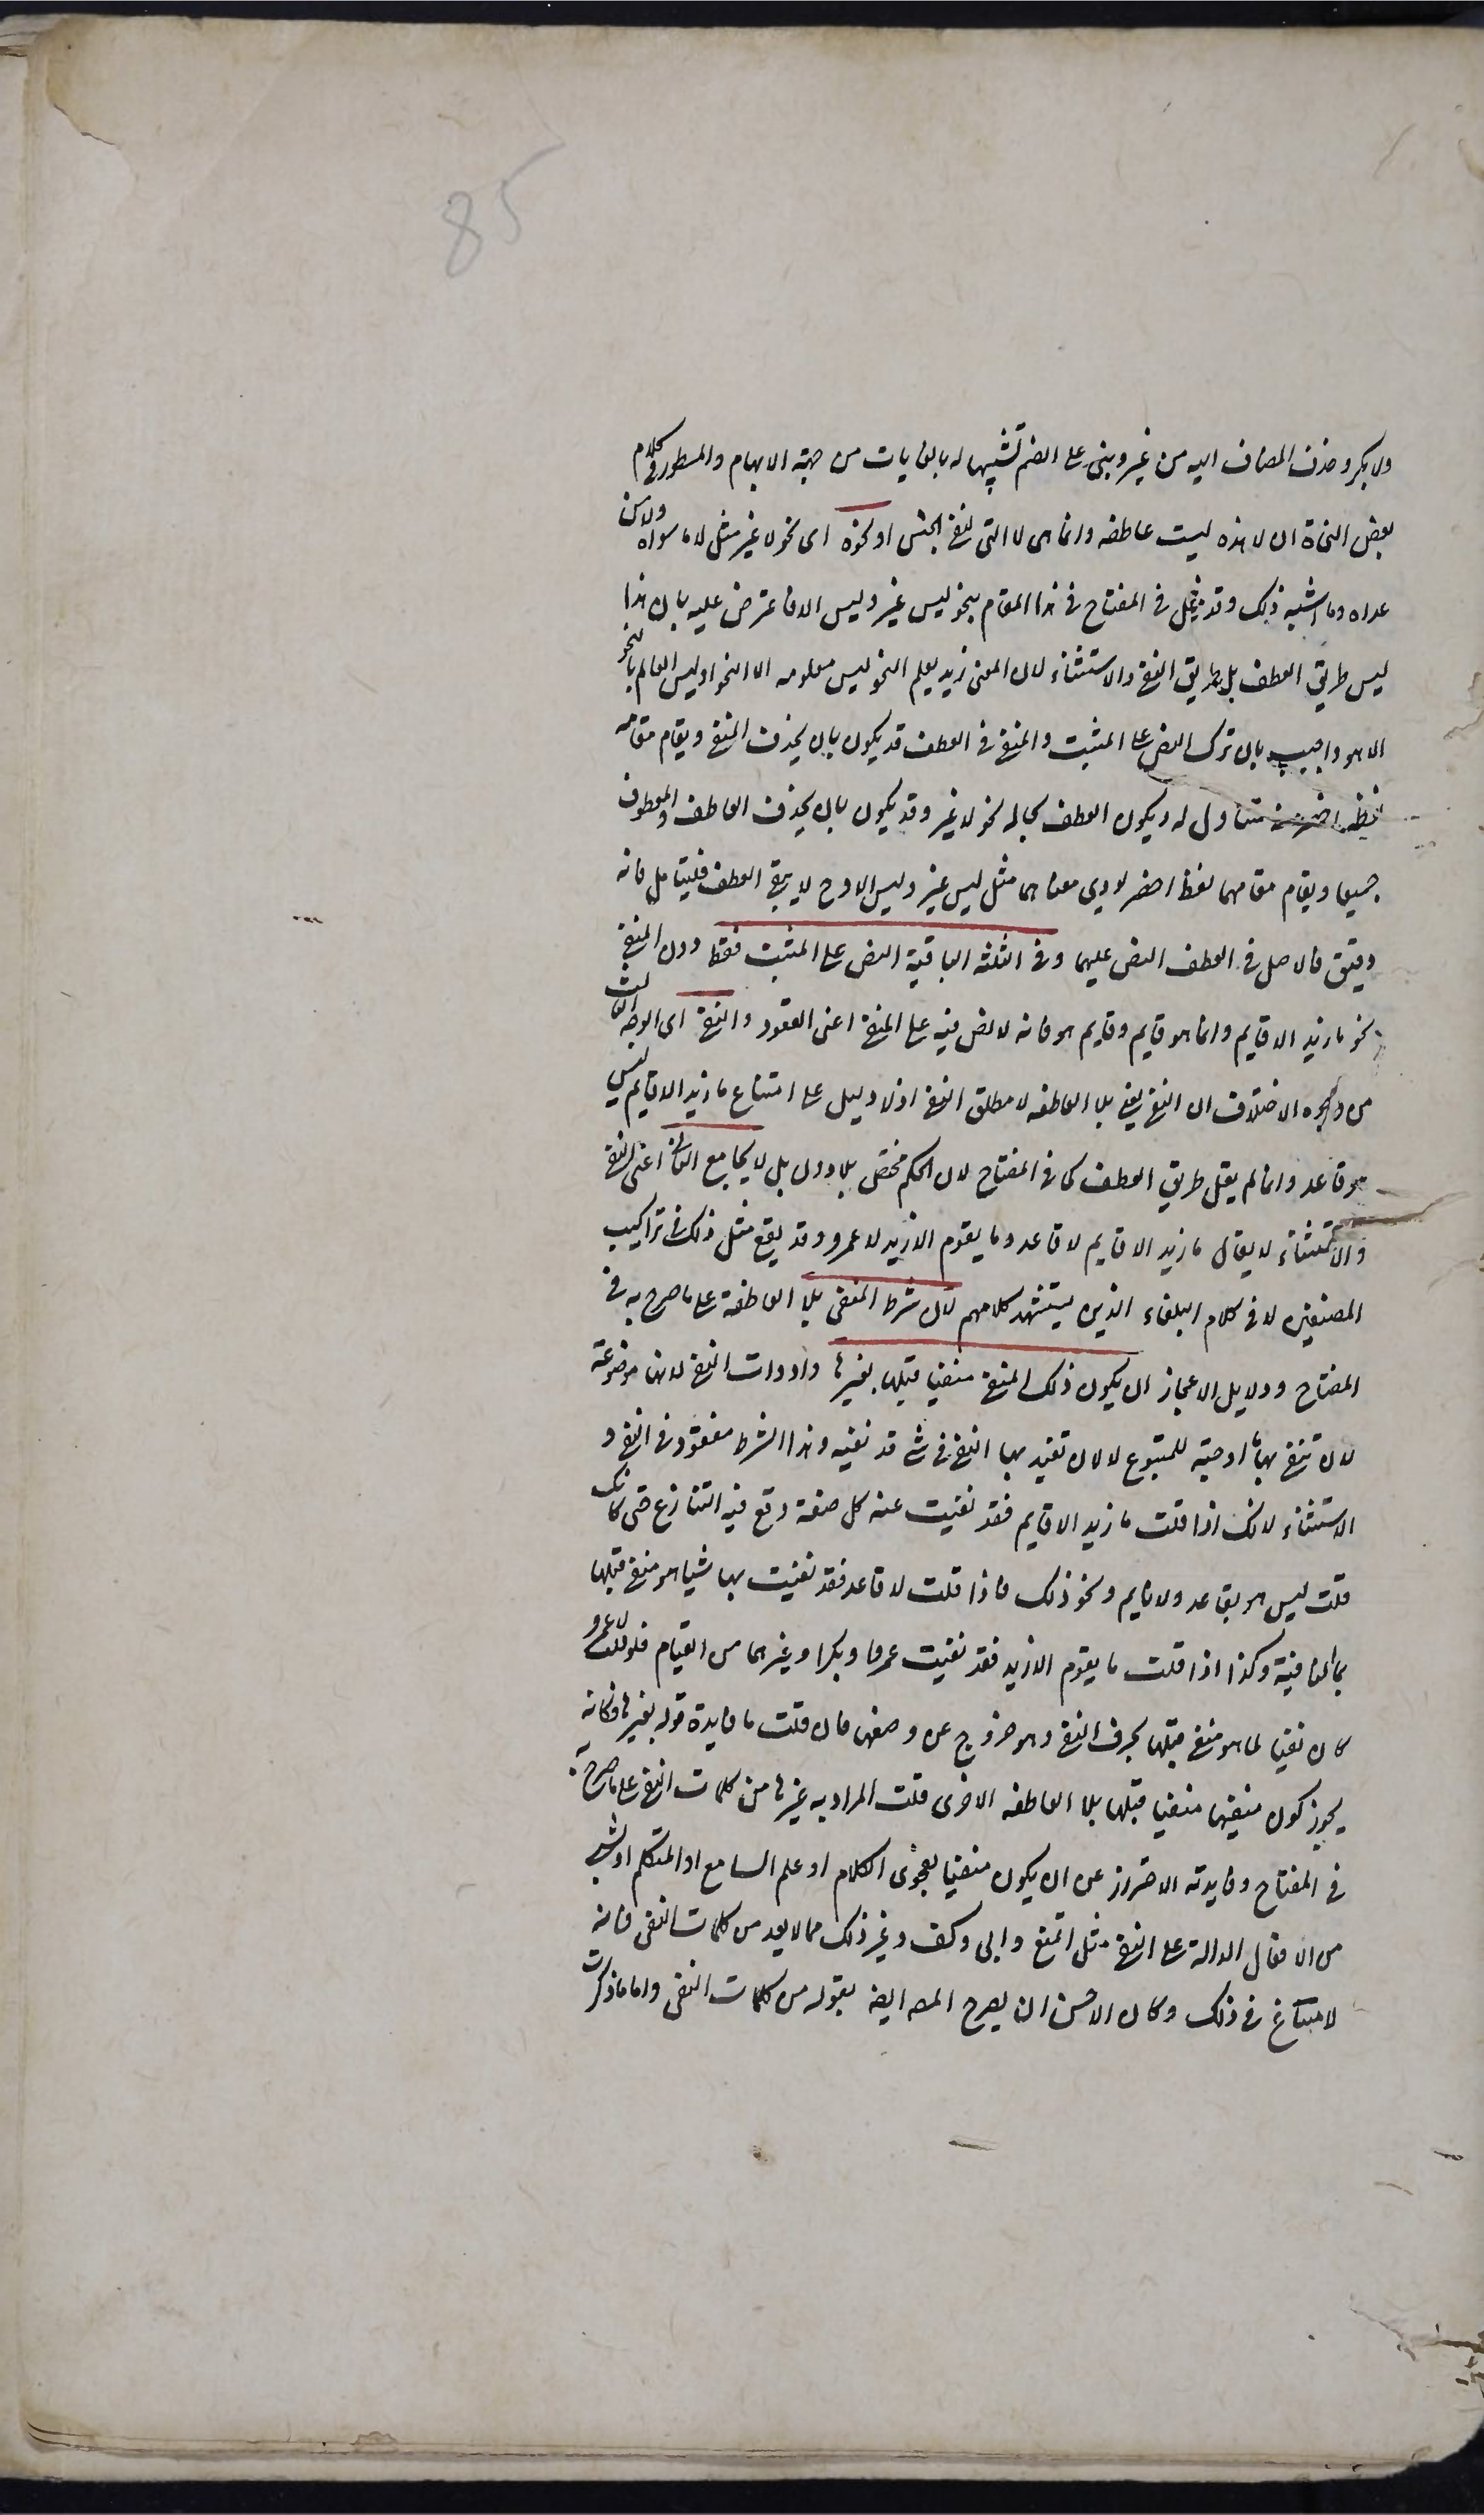 85
ولا بكر وحذف المضاف اليه من غير وبنى على الضم تشبيها له بالغايات من جهة الابهام والمسطور فى كلام
بعض النحاة ان لا هذه ليست عاطفه وانما هى لا التى لنفى الجنس او نحوه اى نحو لا غير مثل لا ما سواه ولا من
عداه وما اشبه ذلك وقد مثل فى المفتاح فى هذا المقام بنحو ليس غير وليس الا فاعترض عليه بان هذا
ليس طريق العطف بل طريق النفى والاستثناء لان المعنى زيد يعلم النحو ليس معلومه الا النحو او ليس العالم بالنحو
الا هو واجيب بان ترك النص على المثبت والمنفى فى العطف قد يكون بان يحذف المنفى ويقام مقامه
لفظ اخصر متناول له ويكون العطف بحاله نحو لا غير وقد يكون بان يحذف العاطف والمعطوف
جميعا ويقام مقامهما لفظ اخصر لودى معناهما مثل ليس غير وليس الا وح لا يبقى العطف فليتامل فانه
دقيق فالاصل فى العطف النص عليهما وفى الثلثه الباقية النص على المثبت فقط دون المنفى
نحو ما زيد الا قايم وانما هو قايم وقايم هو فانه لا نص فيه على المنفى اعنى القعود والنفى اى الوجه الثالث
من وجوه الاختلاف ان النفى يعنى بلا العاطفه لا مطلق النفى اذ لا دليل على امتناع ما زيد الا قايم ليس
هو قاعد وانما لم يقل طريق العطف كما فى المفتاح لان الحكم مختص بلا دون بل لا يجامع الثانى اعنى النفى
والاستثناء لا يقال ما زيد الا قايم لا قاعد وما يقوم الا زيد لا عمرو وقد يقع مثل ذلك فى تراكيب
المصنفين لا فى كلام البلغاء الذين يستشهد كلامهم لان شرط المنفى بلا العاطفة على ما صرح به فى
المفتاح ودلايل الاعجاز ان يكون ذلك المنفى منفيا قبلها بغيرها وادوات النفى لانها موضوعة
لان تنفى بها ما اوجبته للمتبوع لا لان تفيد بها النفى فى شئ قد نفيته وهذا الشرط مفقود فى النفى و
الاستثناء لانك اذا قلت ما زيد الا قايم فقد نفيت عنه كل صفة وقع فيه التنازع حتى كانك
قلت ليس هو بقاعد ولا نايم ونحو ذلك فاذا قلت لا قاعد فقد نفيت بها شيا هو منفى قبلها
بما النافية وكذا اذا قلت ما يقوم الا زيد فقد نفيت عمروا وبكرا وغيرهما من القيام فلو قلت لا عمرو
كان نفيا لما هو منفى قبلها بحرف النفى وهو خروج عن وضعها فان قلت ما فايدة قوله بغيرها فكانه
يجوز كون منفيها منفيا قبلها بلا العاطفه الاخرى قلت المراد به غيرها من كلمات النفى على ما صرح به
فى المفتاح وفايدته الاحتراز عن ان يكون منفيا بفحوى الكلام او علم السامع او المتكلم او بشئ
من الافعال الدالة على النفى مثل امتنع وابى وكف وغير ذلك مما لا يعد من كلمات النفى فانه
لا امتناع فى ذلك وكان الاحسن ان يصرح المص ايضا بقوله من كلمات النفى واما ما ذكرت